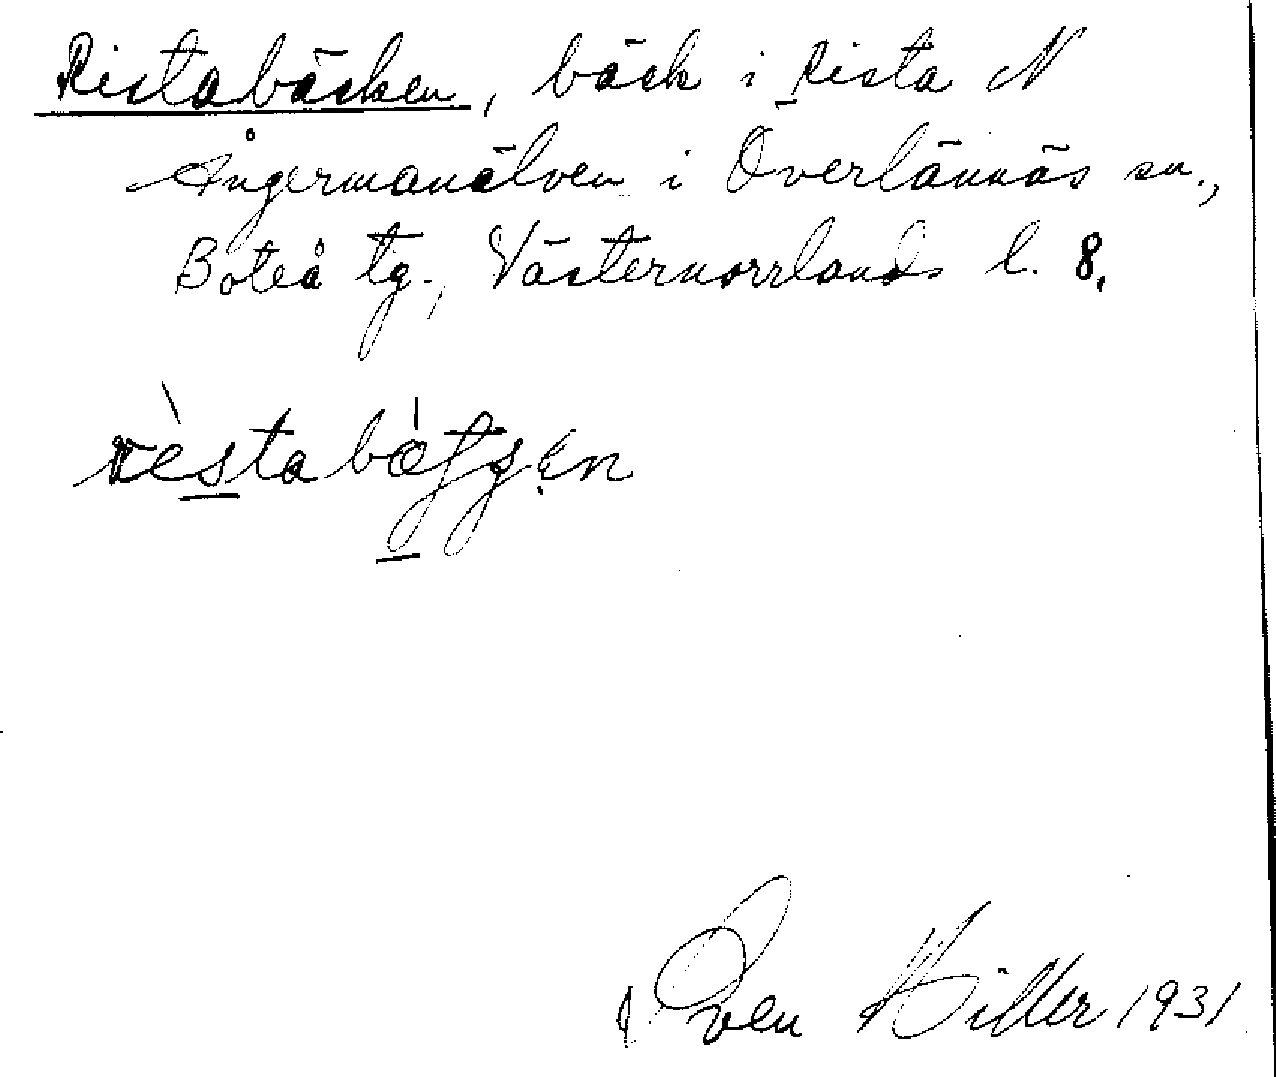 Ristabäcken, bäck i Rista N
Ångermanälven i Överlännäs sn.,
Boteå tg., Västernorrlands l. 8.
Sven Hiller 1931